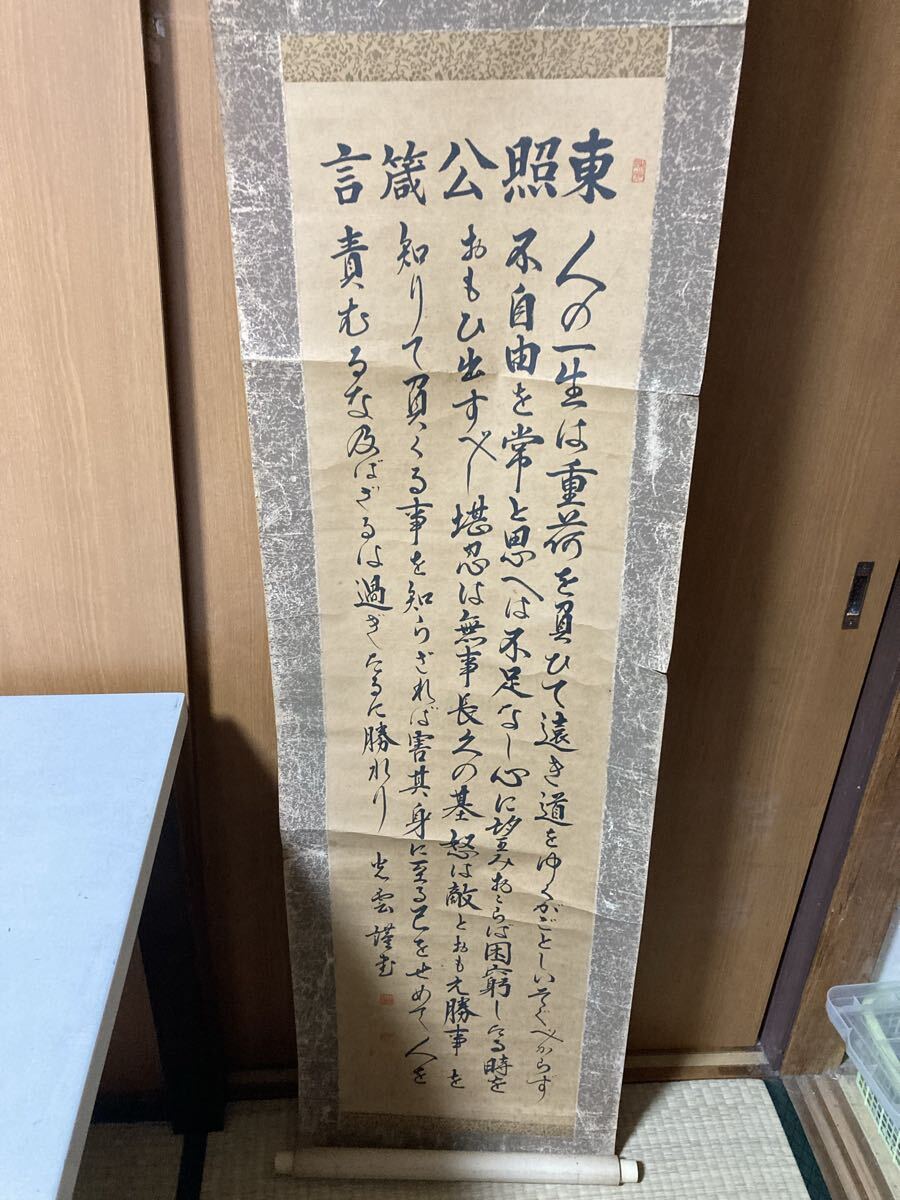 東照公箴言
人の一生は重荷を負ひて遠き道をゆくがごとしいそぐべからず
不自由を常と思へは不足なし心に望みおこらは困窮したる時を
おもひ出すべし堪忍は無事長久の基怒は敵とおもえ勝事を
知りて負くる事を知らざれば害其身に至る己をせめて人を
責むるな及ばざるは過ぎたるに勝れり
光雲謹書